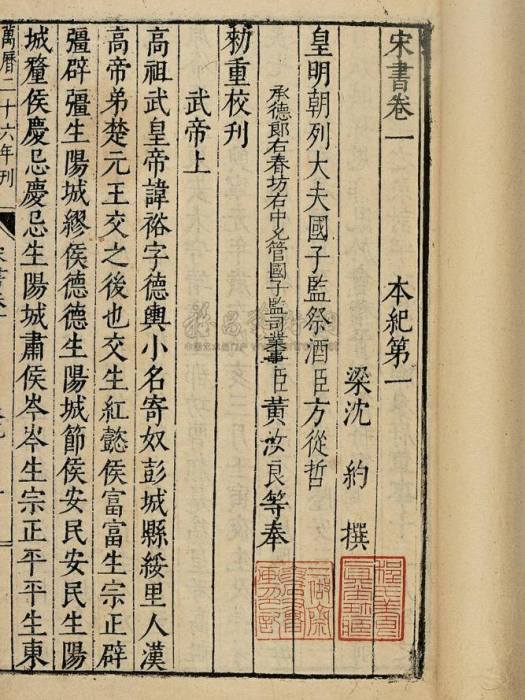 宋書卷一 本紀第一
梁沈約撰
皇明朝列大夫國子監祭酒臣方從哲
承德郎右春坊右中允管國子監司業事臣黃汝良等奉
勑重校刊
武帝上
高祖武皇帝諱裕字德輿小名寄奴彭城縣綏里人漢
高帝弟楚元王交之後也交生紅懿侯富富生宗正辟
彊辟彊生陽城繆侯德德生陽城節侯安民安民生陽
城釐侯慶忌慶忌生陽城肅侯岑岑生宗正平平生東
萬曆二十六年刊
宋書卷一